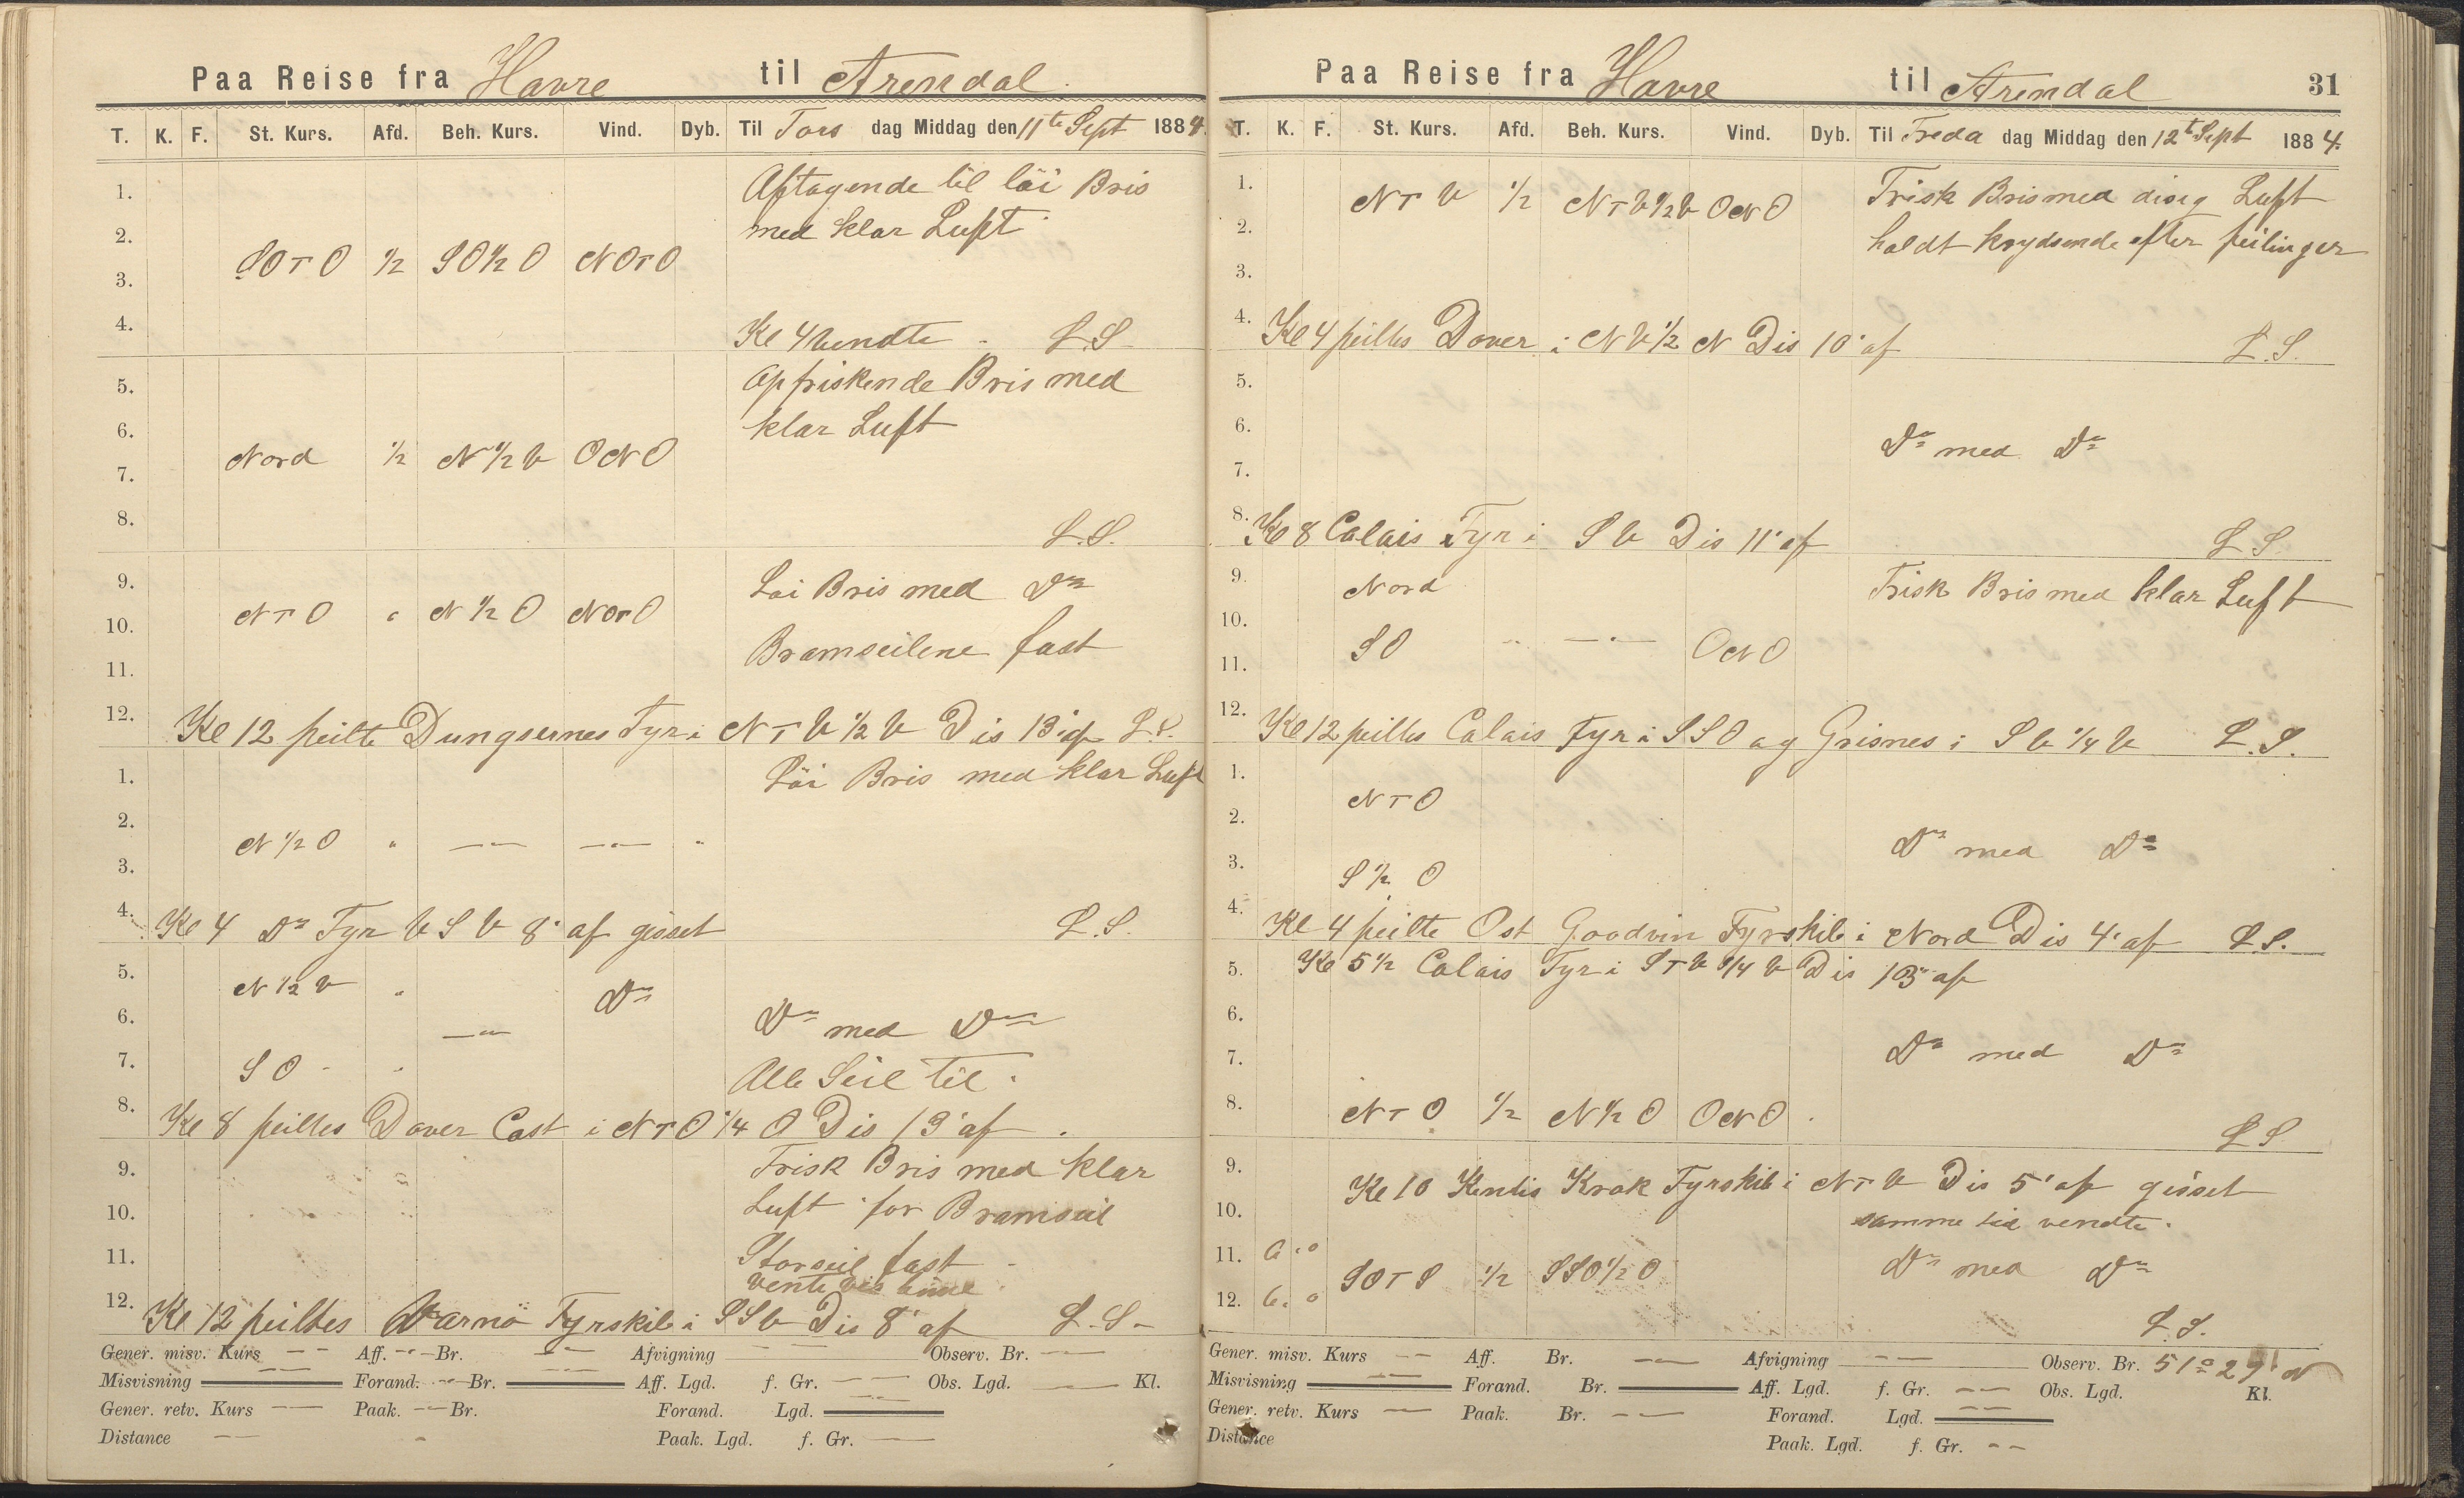 Paa Reise fra Havre til Arendal.
T. K. F. St. Kurs. Afd. Beh. Kurs. Vind. Dyb. Til Tors dag Middag den 11te Sept 1884.
1. Aftagende til löi Bris
2. med klar Luft
SOTO 1/2 SO1/2 O NOTO
3.
4. Kl 4 vendte - L.S-
5. Opfriskende Bris med
6. klar Luft
Nord 1/2 N 1/2 V ONO
7.
8. L.S.
9. Löi Bris med Do
10. NTO " N 1/2 O NOTO
Bramseilene fast
11.
12. Kl 12 peilte Dungsernes Fyr i NTV 1/2 V Dis 13' af L.S.
1. Löi Bris med klar Luft
2. N 1/2 O " —"— —"— "
3.
4. Kl 4 Do Fyr VSV 8' af gisset L.S.
5. N 1/2 V " Do
6. —"— Do med Do
7. SO - " Alle Seil til.
8. Kl 8 peiltes Dover Cast i NTO 1/4 O Dis 13' af.
9. Frisk Bris med klar
10. Luft for Bramseil
11. Storseil fast -
vente
12. Kl 12 peiltes Varnö Fyrskib i SSV Dis 8' af L.S-
Gener. misv. Kurs — Aff. — Br. — Afvigning — Observ. Br. —
Misvisning — Forand. — Br. — Aff. Lgd. f. Gr. — Obs. Lgd. — Kl.
Gener. retv. Kurs — Paak. — Br. Forand. Lgd. —
Distance — Paak. Lgd. f. Gr. —
Paa Reise fra Havre til Arendal 31
T. K. F. St. Kurs. Afd. Beh. Kurs. Vind. Dyb. Til Freda dag Middag den 12te Sept 1884.
1. NTV 1/2 NTV1/2V ONO Frisk Bris med disig Luft
2. holdt krydsende efter peilinger
3.
4. Kl 4 peiltes Dover i NV 1/2 N Dis 10' af L.S.
5.
6. Do med Do
7.
8. Kl 8 Calais Fyr i SV Dis 11' af L S.
9. Nord Frisk Bris med klar Luft
10.
SO " —"— ONO
11.
12. Kl 12 peiltes Calais Fyr i SSO og Grisnes i SV 1/4 V L.S.
1. NTO
2. Do med Do
3. S 1/2 O
4. Kl 4 peilte Ost Goodvin Fyrskib i Nord Dis 4' af L.S.
5. Kl 5 1/2 Calais Fyr i STV 3/4 V Dis 13' af
6.
7. Do med Do
8. NTO 1/2 N1/2 O ONO. L S
9. Kl 10 Kentis Krok Fyrskib i NTV Dis 5' af gisset
10. samme tid vendte.
11. 6. 0 Do med Do
SOTS 1/2 SSO1/2 O
12. 6. 0
L.S.
Gener. misv. Kurs — Aff. Br. — Afvigning — Observ. Br. 51° 29' N
Misvisning — Forand. Br. — Aff. Lgd. f. Gr. — Obs. Lgd. Kl.
Gener. retv. Kurs — Paak. Br. — Forand. Lgd. —
Distance Paak. Lgd. f. Gr. —